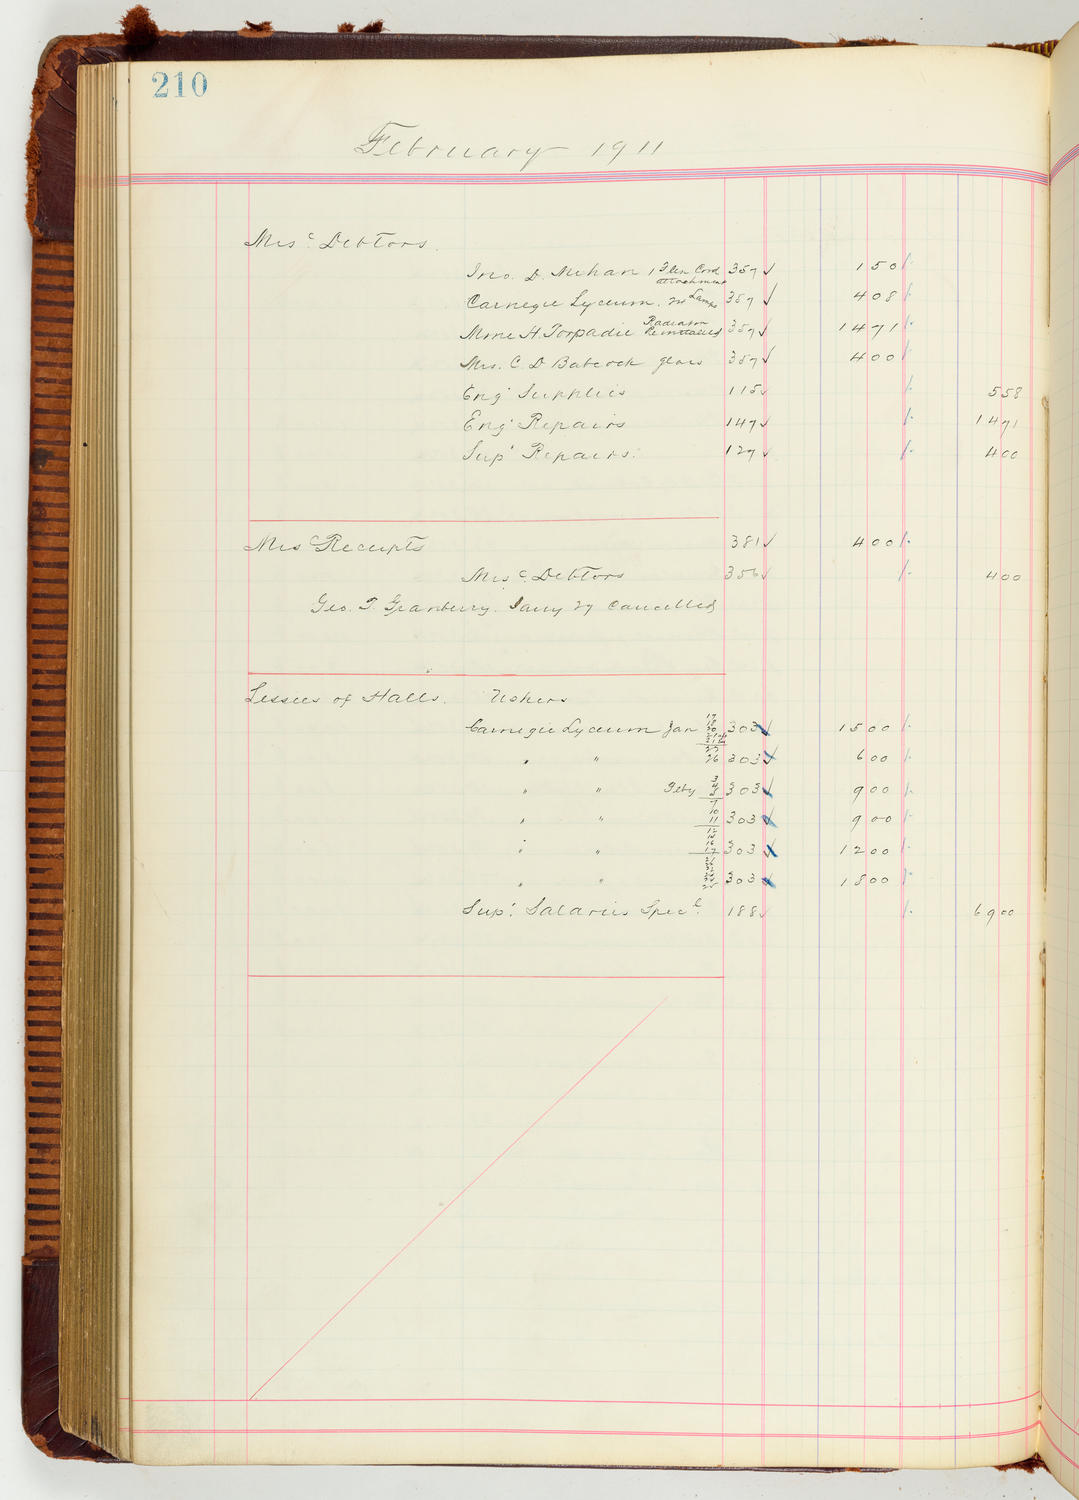 210
February 1911
Misc. Debtors.
Jno. D. Mehan 1 3 lin Cord attachment 357 ✓ 1 50
Carnegie Lyceum. Lamps 357 ✓ 4 08
Mme H. Torpadie Radiator 357 ✓ 14 71
Mrs. C. D Babcock glass 357 ✓ 4 00
Eng' Supplies 115 ✓ 5 58
Eng' Repairs 147 ✓ 14 71
Sup' Repairs. 127 ✓ 4 00
Misc Receipts 381 ✓ 4 00
Misc. Debtors 356 ✓ 4 00
Geo. T. Granberry. Jany 27 Cancelled
Lessees of Halls. Ushers
Carnegie Lyceum Jan 17 18 20 303 ✓ 15 00
" " 26 303 ✓ 6 00
" " Feby 3 4 303 ✓ 9 00
" " 9 10 11 303 ✓ 9 00
" " 16 17 303 ✓ 12 00
" " 25 303 ✓ 18 00
Sup'. Salaries Specl. 188 ✓ 69 00